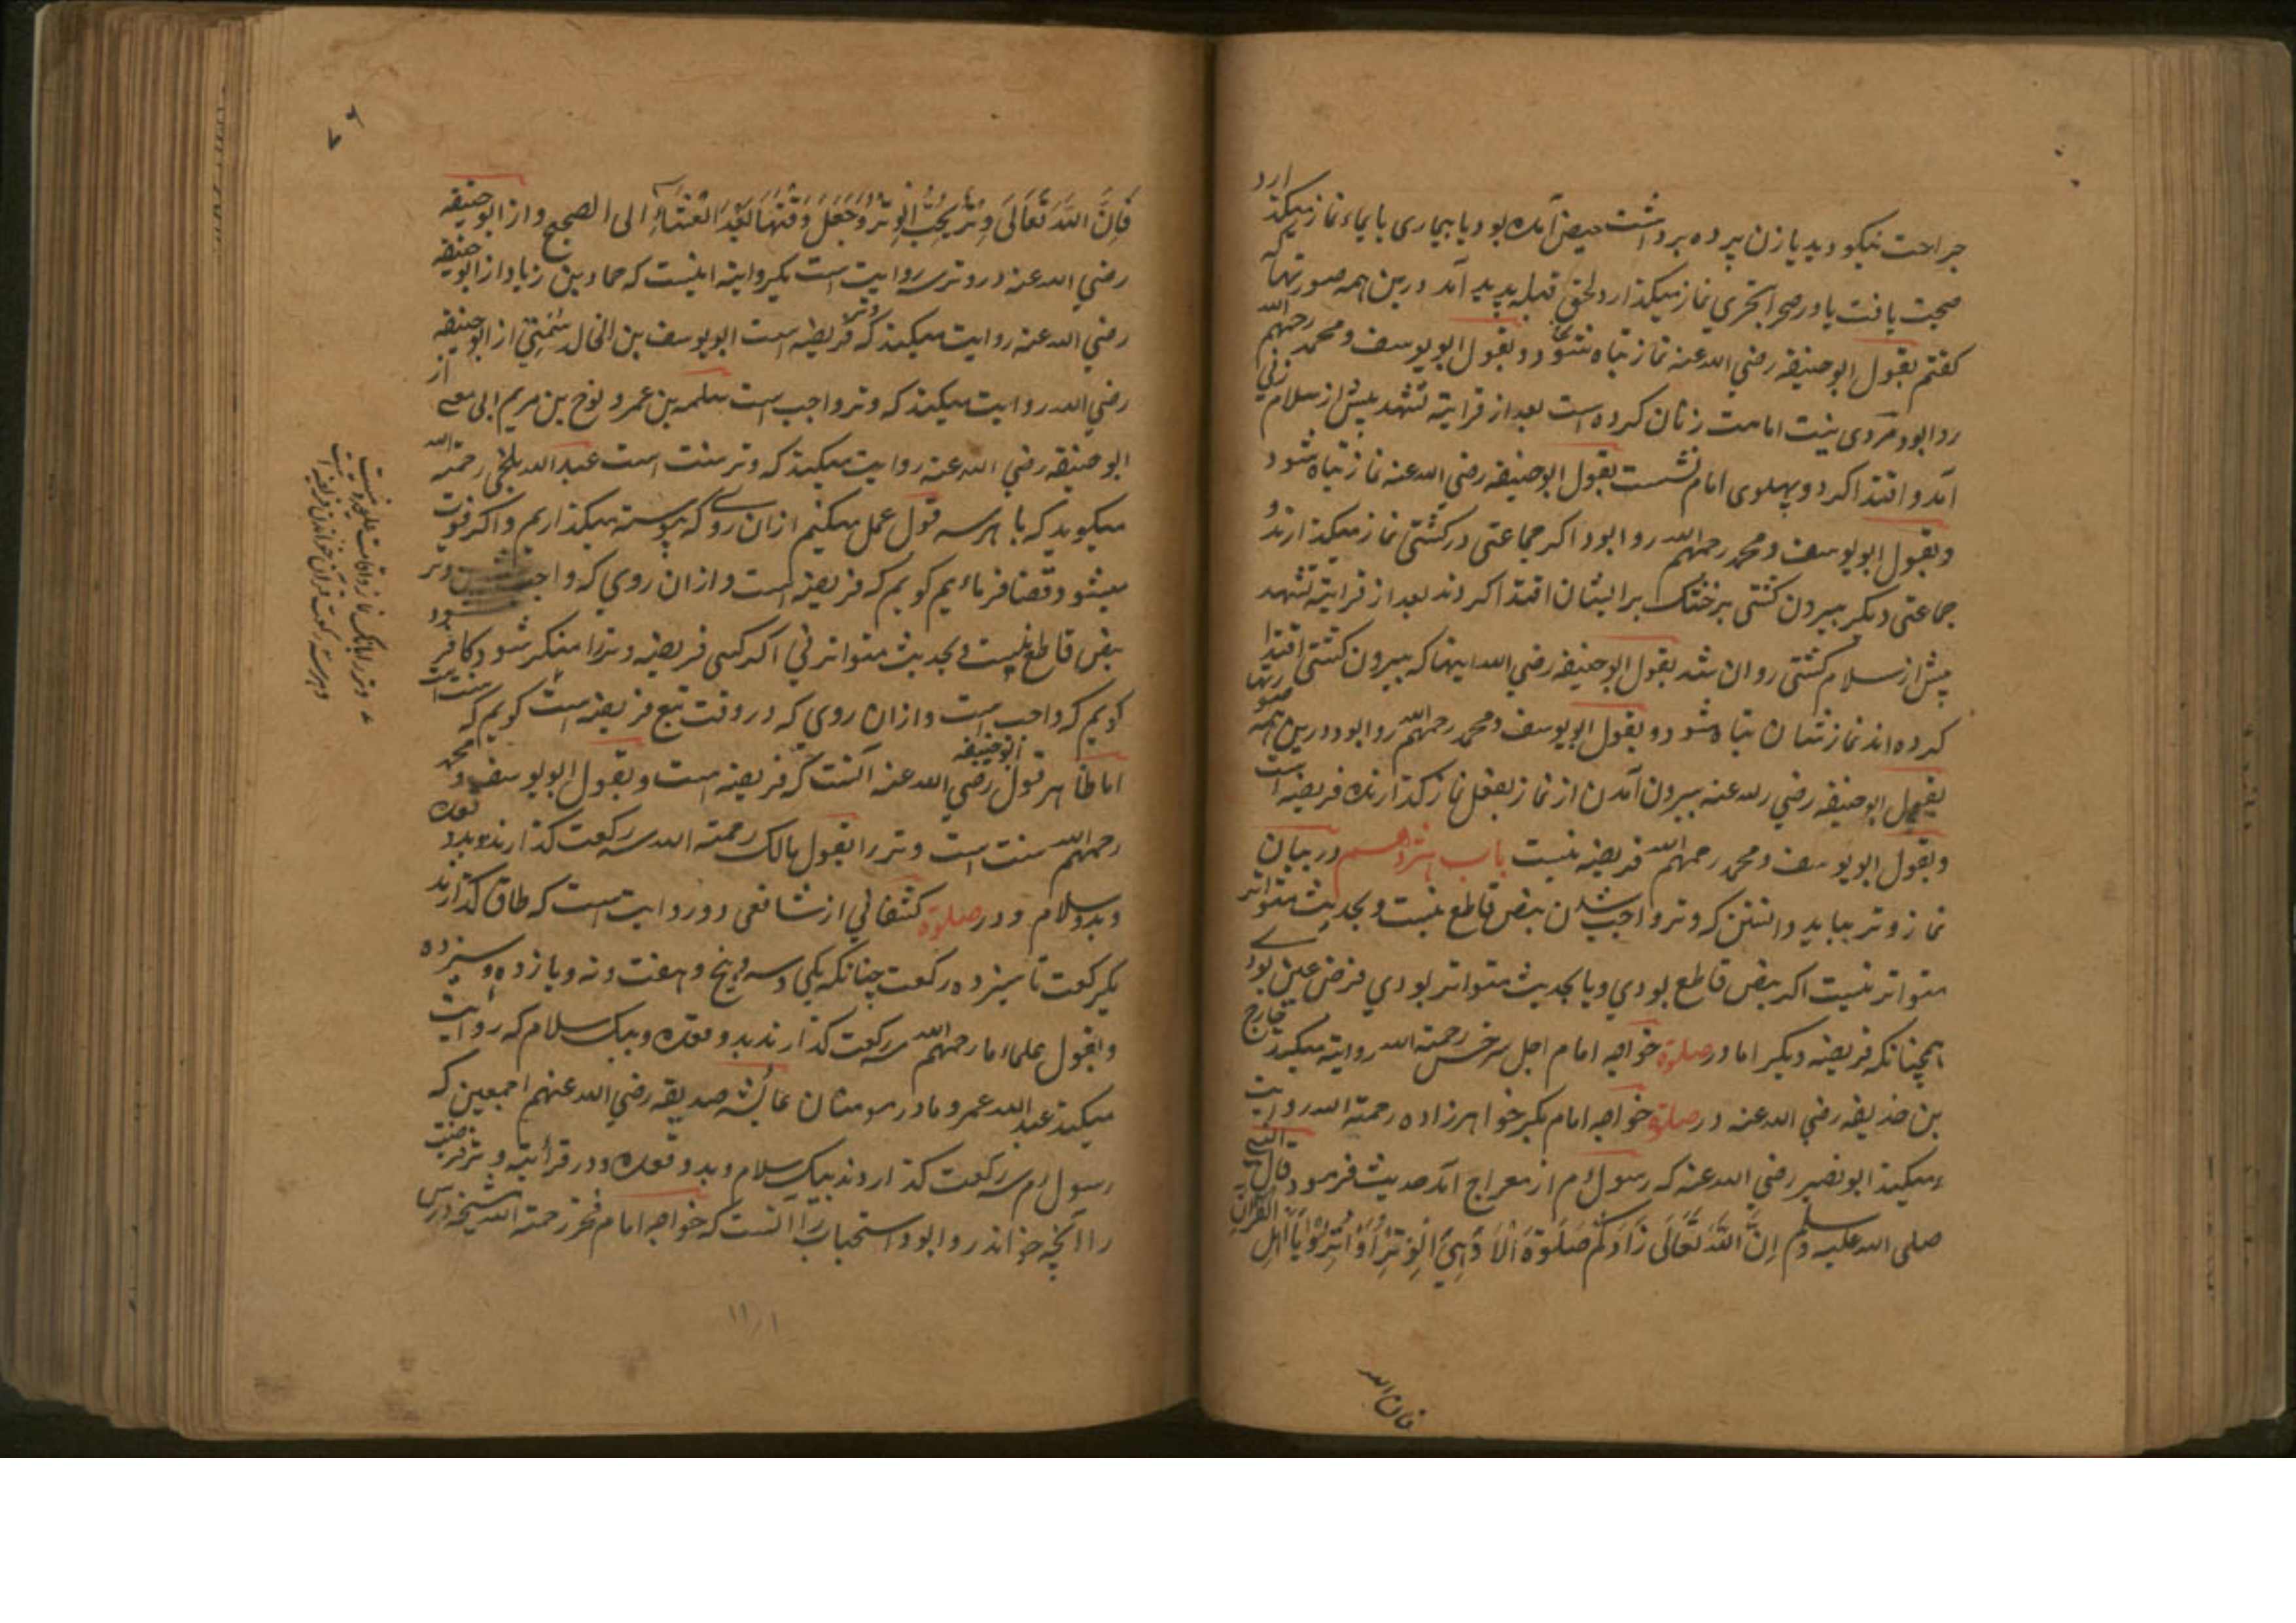 جراحت نیکو دید یا زن پرده برداشت حیض آمده بود یا بیماری بایماء نماز میکذارد
صحت یافت یا در صحرا بتحری نماز میکذارد لحق قبله پدید آمد درین همه صورتها که
کفتم بقول ابو حنیفه رضی الله عنه نماز تباه شود و بقول ابو یوسف و محمد رحمهم الله
روا بود مردی بنیت امامت زنان کرده است بعد از قرایة تشهد پیش از سلام زنی
آمد و اقتدا کرد و پهلوی امام نشست بقول ابو حنیفه رضی الله عنه نماز تباه شود
و بقول ابو یوسف و محمد رحمهم الله روا بود اکر جماعتی در کشتی نماز میکذارند و
جماعتی دیکر بیرون کشتی بر خشک برایشان اقتدا کردند بعد از قرایة تشهد
پیش از سلام کشتی روان شد بقول ابو حنیفه رضی الله اینها که بیرون کشتی اقتدا
کرده اند نماز شان تباه شود و بقول ابو یوسف و محمد رحمهم الله روا بود درین همه صورتها
بقول ابو حنیفه رضی الله عنه بیرون آمدن از نماز بفعل نماز کذارنده فریضه است
و بقول ابو یوسف و محمد رحمهم الله فریضه نیست باب هژدهم در بیان
نماز وتر بباید دانستن که وتر واجب شدن بنص قاطع نیست و بحدیث متواتر
متواتر نیست اکر بنص قاطع بودی و یا بحدیث متواتر بودی فرض عین بودی
همچنانکه فریضه دیکر اما در صلوة خواجه امام اجل سرخسی رحمة الله روایة میکند خارج
بن حذیفه رضی الله عنه در صلوة خواجه امام بکر خواهرزاده رحمة الله روایت
میکند ابو نصیر رضی الله عنه که رسول م از معراج آمد حدیث فرمود قال النبی
صلی الله علیه وسلم اِنَّ اللّٰهَ تَعَالَی زَادَکُمْ صَلَوٰةً اَلَا وَهِیَ الْوِتْرُ اَوْتِرُوْا یَا اَهْلَ القرآن
فان الله
۷۶
فَاِنَّ اللّٰهَ تَعَالَی وِتْرٌ یُحِبُّ الْوِتْرَ وَجَعَلَ وَقْتَهَا بَعْدَ الْعِشَاءِ الی الصبح و از ابو حنیفه
رضی الله عنه در وتر سه روایت است یکروایة اینست که حماد بن زیاد از ابو حنیفه
رضی الله عنه روایت میکند که وتر فریضه است ابو یوسف بن الخالد سمتی از ابو حنیفه
رضی الله روایت میکند که وتر واجب است سلمه بن عمرو نوح بن مریم ابی از
ابو حنیفه رضی الله عنه روایت میکند که وتر سنت است عبد الله بلخی رحمة الله
میکوید که با هر سه قول عمل میکنیم ازان روی که پیوسته میکذاریم و اکر فوت
میشود قضا فرمائیم کویم که فریضه است و ازان روی که واجب وتر
بنص قاطع نیست و بحدیث متواتر نی اکر کسی فریضه وتر را منکر شود کافر شود
کویم که واجب است و ازان روی که در وقت تبع فریضه است کویم که سنت است
اما ظاهر قول ابو حنیفه رضی الله عنه آنست که فریضه است و بقول ابو یوسف و محمد
رحمهم الله سنت است وتر را بقول مالک رحمة الله سه رکعت کذارند بدو قعده
و بدو سلام و در صلوة کشفانی از شافعی دو روایت است که طاق کذارند
یکرکعت تا سیزده رکعت چنانکه یکی و سه و پنج و هفت و نه و یازده و سیزده
و بقول علماء ما رحمهم الله سه رکعت کذارند بدو قعده و بیک سلام که روایت
میکند عبد الله عمر و مادر مومنان عایشه صدیقه رضی الله عنهم اجمعین که
رسول م سه رکعت کذاردند بیک سلام و بدو قعده و در قرأیة وتر فرضیت
را آنچه خوانند روا بود استحباب را آنست که خواجه امام فخر رحمة الله
وتر را بانک نماز و اقامت علیحده نیست
و هر سه رکعت قرآن خواندن فریضه است
۱۱/۱